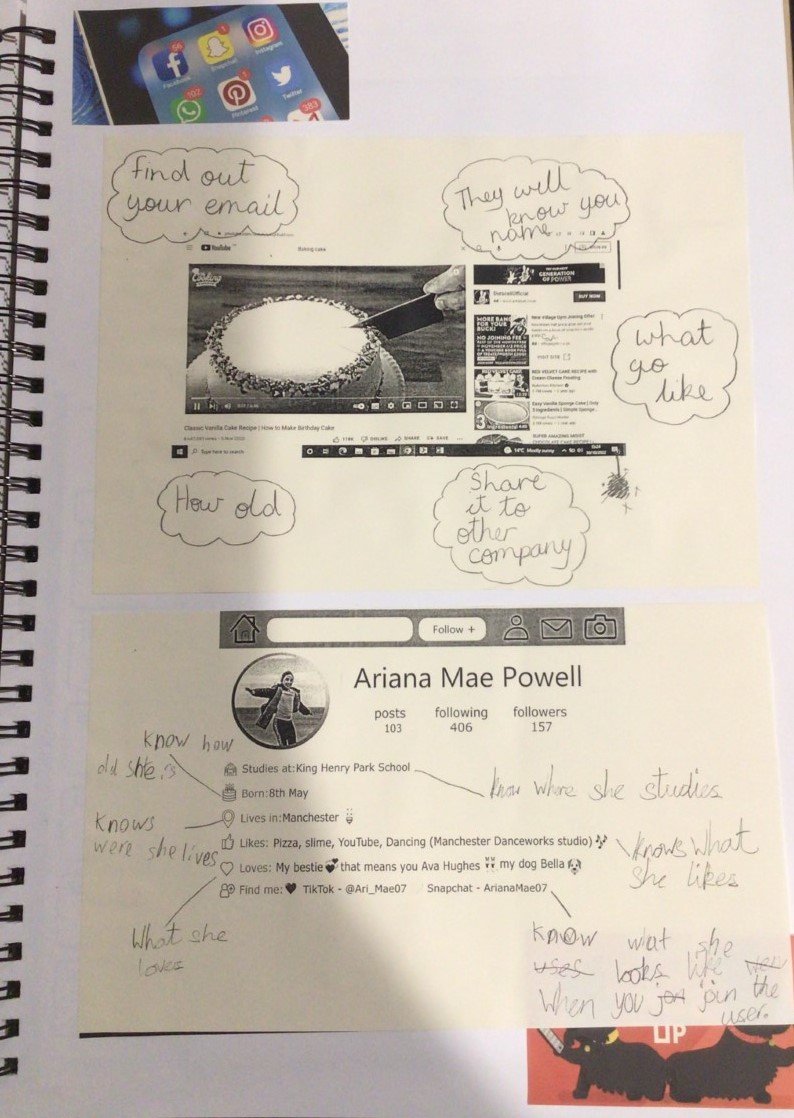 56
1
Facebook
Snapchat
Instagram
102
1
Pinterest
Twitter
383
find out
your email
They will
know you
name
YouTube
Baking cake
Cooking
GENERATION
OF POWER
BUY NOW
MORE BANG
FOR YOUR
BUCK!
NO JOINING FEE
New Village Gym Joining Offer
VISIT SITE
RED VELVET CAKE RECIPE AND
Cream Cheese Frosting
Easy Vanilla Sponge Cake | Only
3 Ingredients | Simple Sponge
SUPER AMAZING MOIST
CHOCOLATE CAKE RECIPE
Classic Vanilla Cake Recipe | How to Make Birthday Cake
DISLIKE
SHARE
SAVE
Type here to search
14°C Mostly sunny
what
yo
like
How old
Share
it to
other
company
Follow +
Ariana Mae Powell
posts following followers
103 406 157
Know how
old she is
Studies at:King Henry Park School
Know where she studies
Born:8th May
Knows
were she lives
Lives in:Manchester
Likes: Pizza, slime, YouTube, Dancing (Manchester Danceworks studio)
Knows what
she likes
Loves: My bestie that means you Ava Hughes my dog Bella
Find me: TikTok - @Ari_Mae07 Snapchat - ArianaMae07
What she
loves
know what she
uses looks like
When you join the
user.
UP